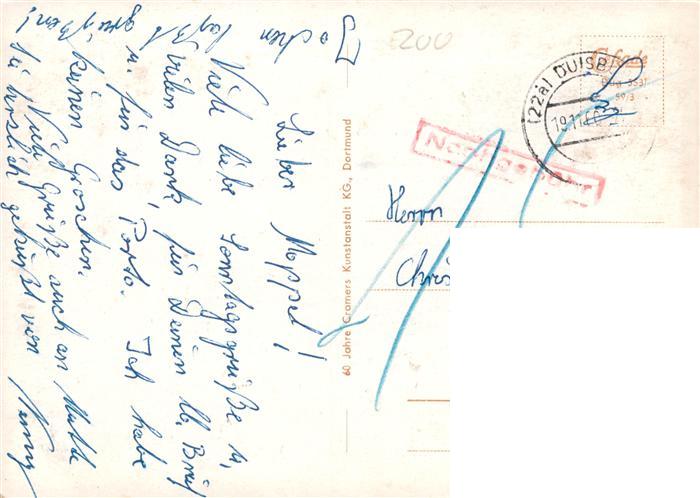 Lieber Moppel!
Viele liebe Sonntagsgrüße u.
vielen Dank für Deinen lb. Brief
u. für das Porto. Ich habe
keinen Groschen.
Viele Grüße auch an Mutti
sei herzlich geküßt von
Jochen
läßt
grüßen!
60 Jahre Cramers Kunstanstalt KG., Dortmund
200
Cekade
(22a) DUISB
Nachgebühr
Herrn
Chris